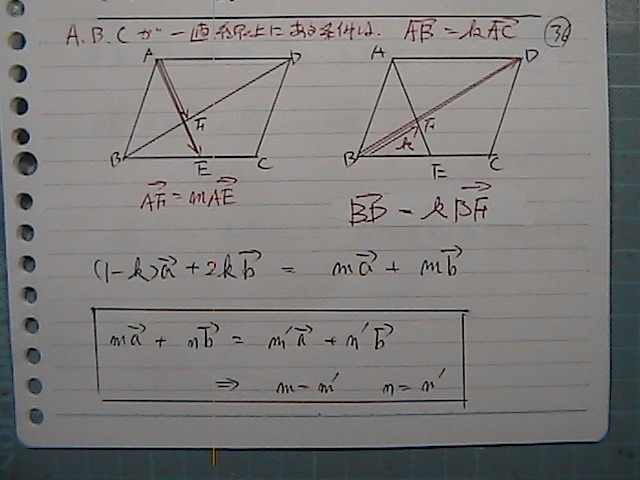 A.B.Cが一直線上にある条件は、 \overrightarrow{AB} = k\overrightarrow{AC} 36
A D A D
F F
k
B E C B E C
\overrightarrow{AF} = m\overrightarrow{AE} \overrightarrow{BD} = k\overrightarrow{BF}
(1-k)\vec{a} + 2k\vec{b} = m\vec{a} + m\vec{b}
m\vec{a} + n\vec{b} = m'\vec{a} + n'\vec{b}
⇒ m=m' n=n'